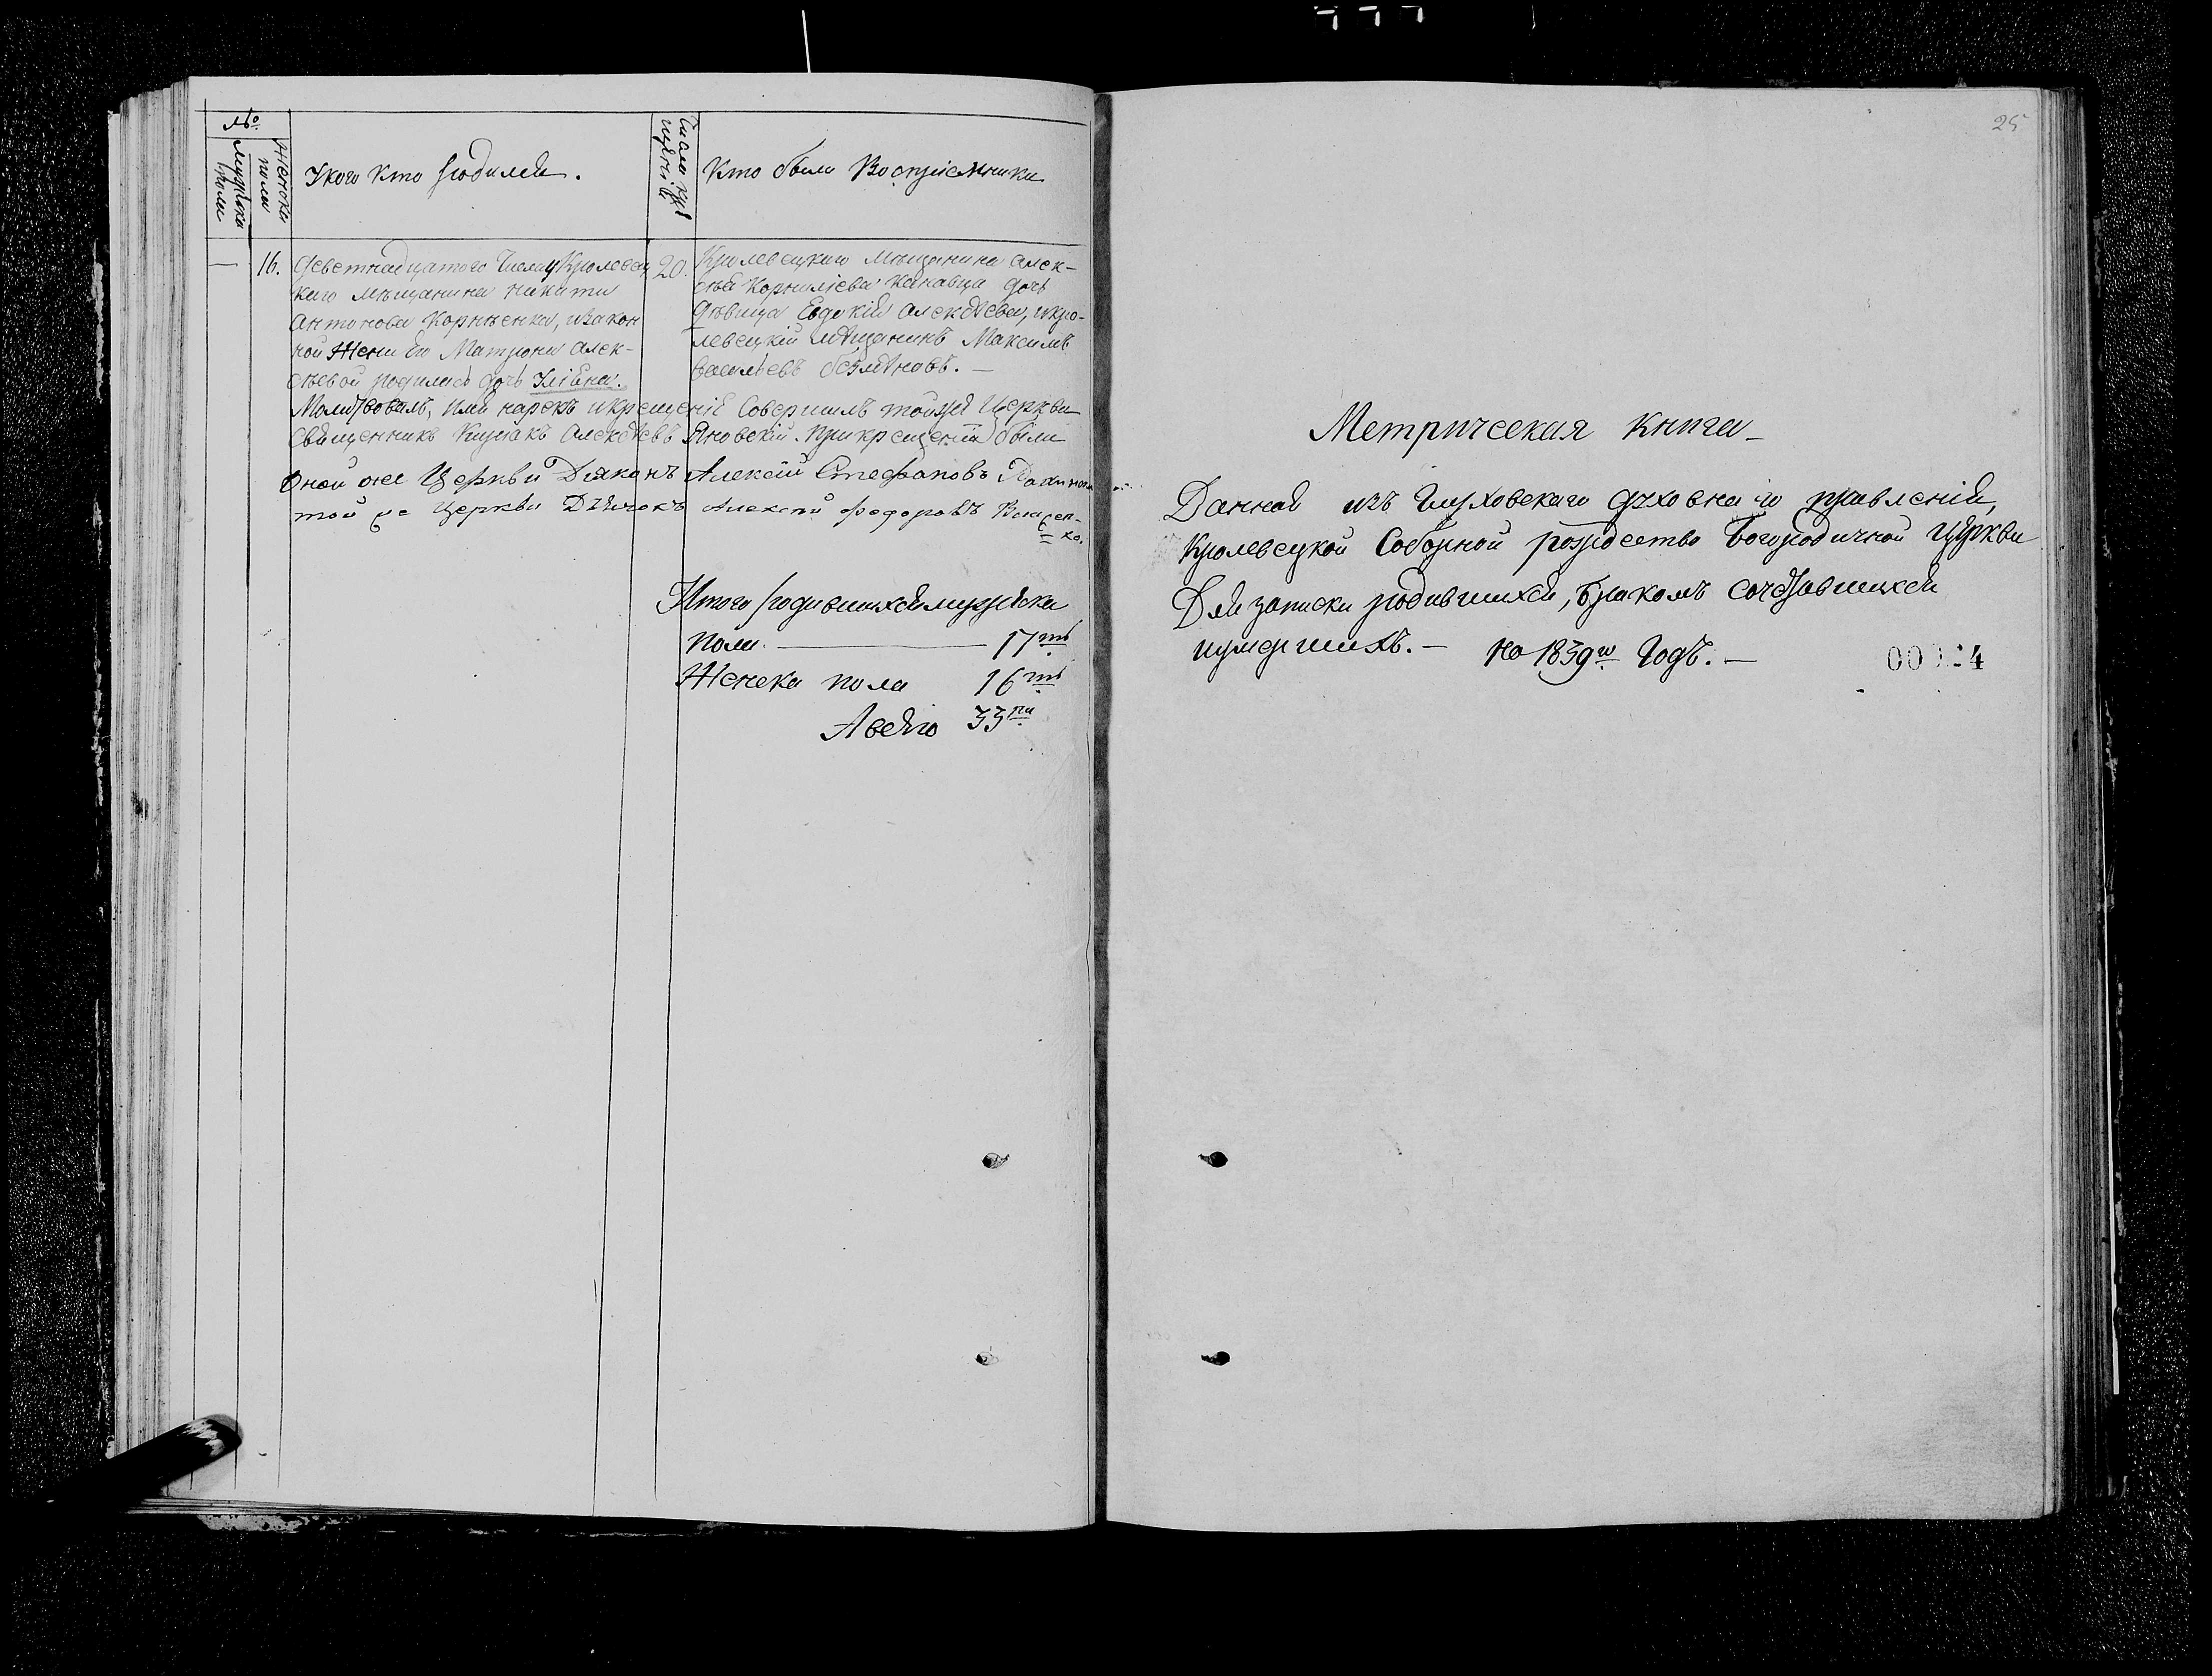 №
Мужска пола
Женска пола
Укого кто родился.
Числа крещенія
Кто были Воспріемники
—
16.
Деветнадцатого Числа у Кролевец
каго мѣщанина Никиты
Антонова Корнѣенка, изакон
ной Жены Его Матроны Алек-
сѣевой родилась дочь Уліана.
20.
Кролевецкаго Мѣщанина Алек-
сѣя Корниліева Канавца дочь
Дѣвица Евдокія Алексѣева, икро-
левецкій мѣщанинъ Максимъ
Васильевъ —
Молитвовалъ, Имя нарекъ икрещеніе Совершилъ тояже Церкви
Священникъ Киріакъ Алексѣевъ Яновскій. Прикрещеніи были
Оной же Церкви Діяконъ Алексѣй Стефановъ
той же Церкви Дьячокъ Алексѣй Федоровъ
Итого родившихся мужеска
пола — 17ть
Женска пола 16ть
Авсего 33ри
25
Метрическая Книга
Данная изъ Глуховскаго Духовнаго правленія,
Кролевецкой Соборной рождество Богородичной Церкви
Для записки родившихся, бракомъ сочетавшихся
иумершихъ. — На 1839й Годъ. —
00024